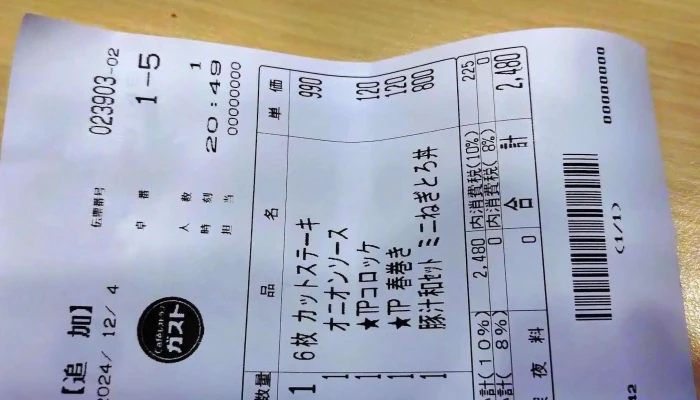 【追 加】
2024/ 12/ 4
Caféレストラン
ガスト
伝票番号 023903-02
卓 番 1-5
人 数 1
時 刻 20:49
担 当 00000000
数量 品 名 単 価
1 6枚 カットステーキ 990
1 オニオンソース
1 ★TPコロッケ 120
1 ★TP 春巻き 120
1 豚汁和セット ミニねぎとろ丼 800
計(10%) 2,480 内消費税(10%) 225
計( 8%) 0 内消費税( 8%) 0
夜 料 0 合 計 2,480
(1/1) 00000000